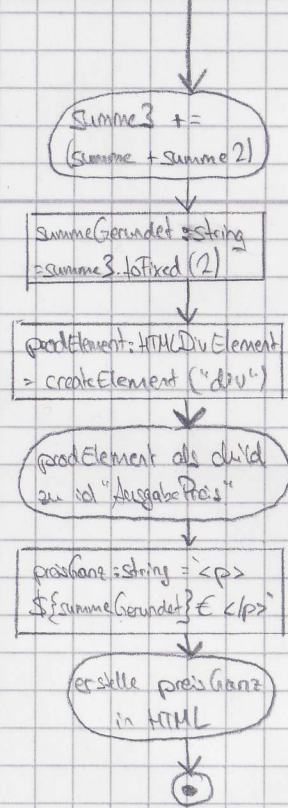 summe3 +=
(summe + summe2)
summeGerundet :string
=summe3.toFixed(2)
prodElement: HTMLDivElement
= createElement("div")
prodElement als child
zu id "AusgabePreis"
preisGanz :string = `<p>
${summeGerundet}€ </p>`
erstelle preisGanz
in HTML